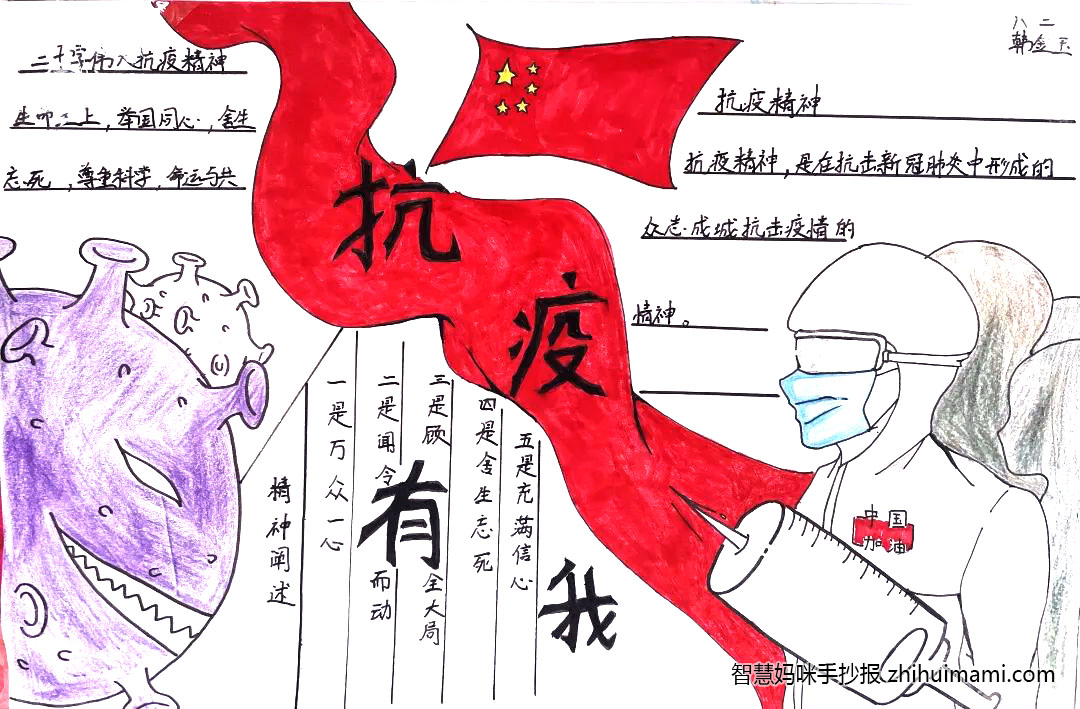 八二
韩金
二十字伟大抗疫精神
生命至上，举国同心，舍生
忘死，尊重科学，命运与共
抗疫精神
抗疫精神，是在抗击新冠肺炎中形成的
众志成城抗击疫情的
精神。
抗
疫
有
我
精神阐述
一是万众一心
二是闻令而动
三是顾全大局
四是舍生忘死
五是充满信心
中国
加油
智慧妈咪手抄报 zhihuimami.com